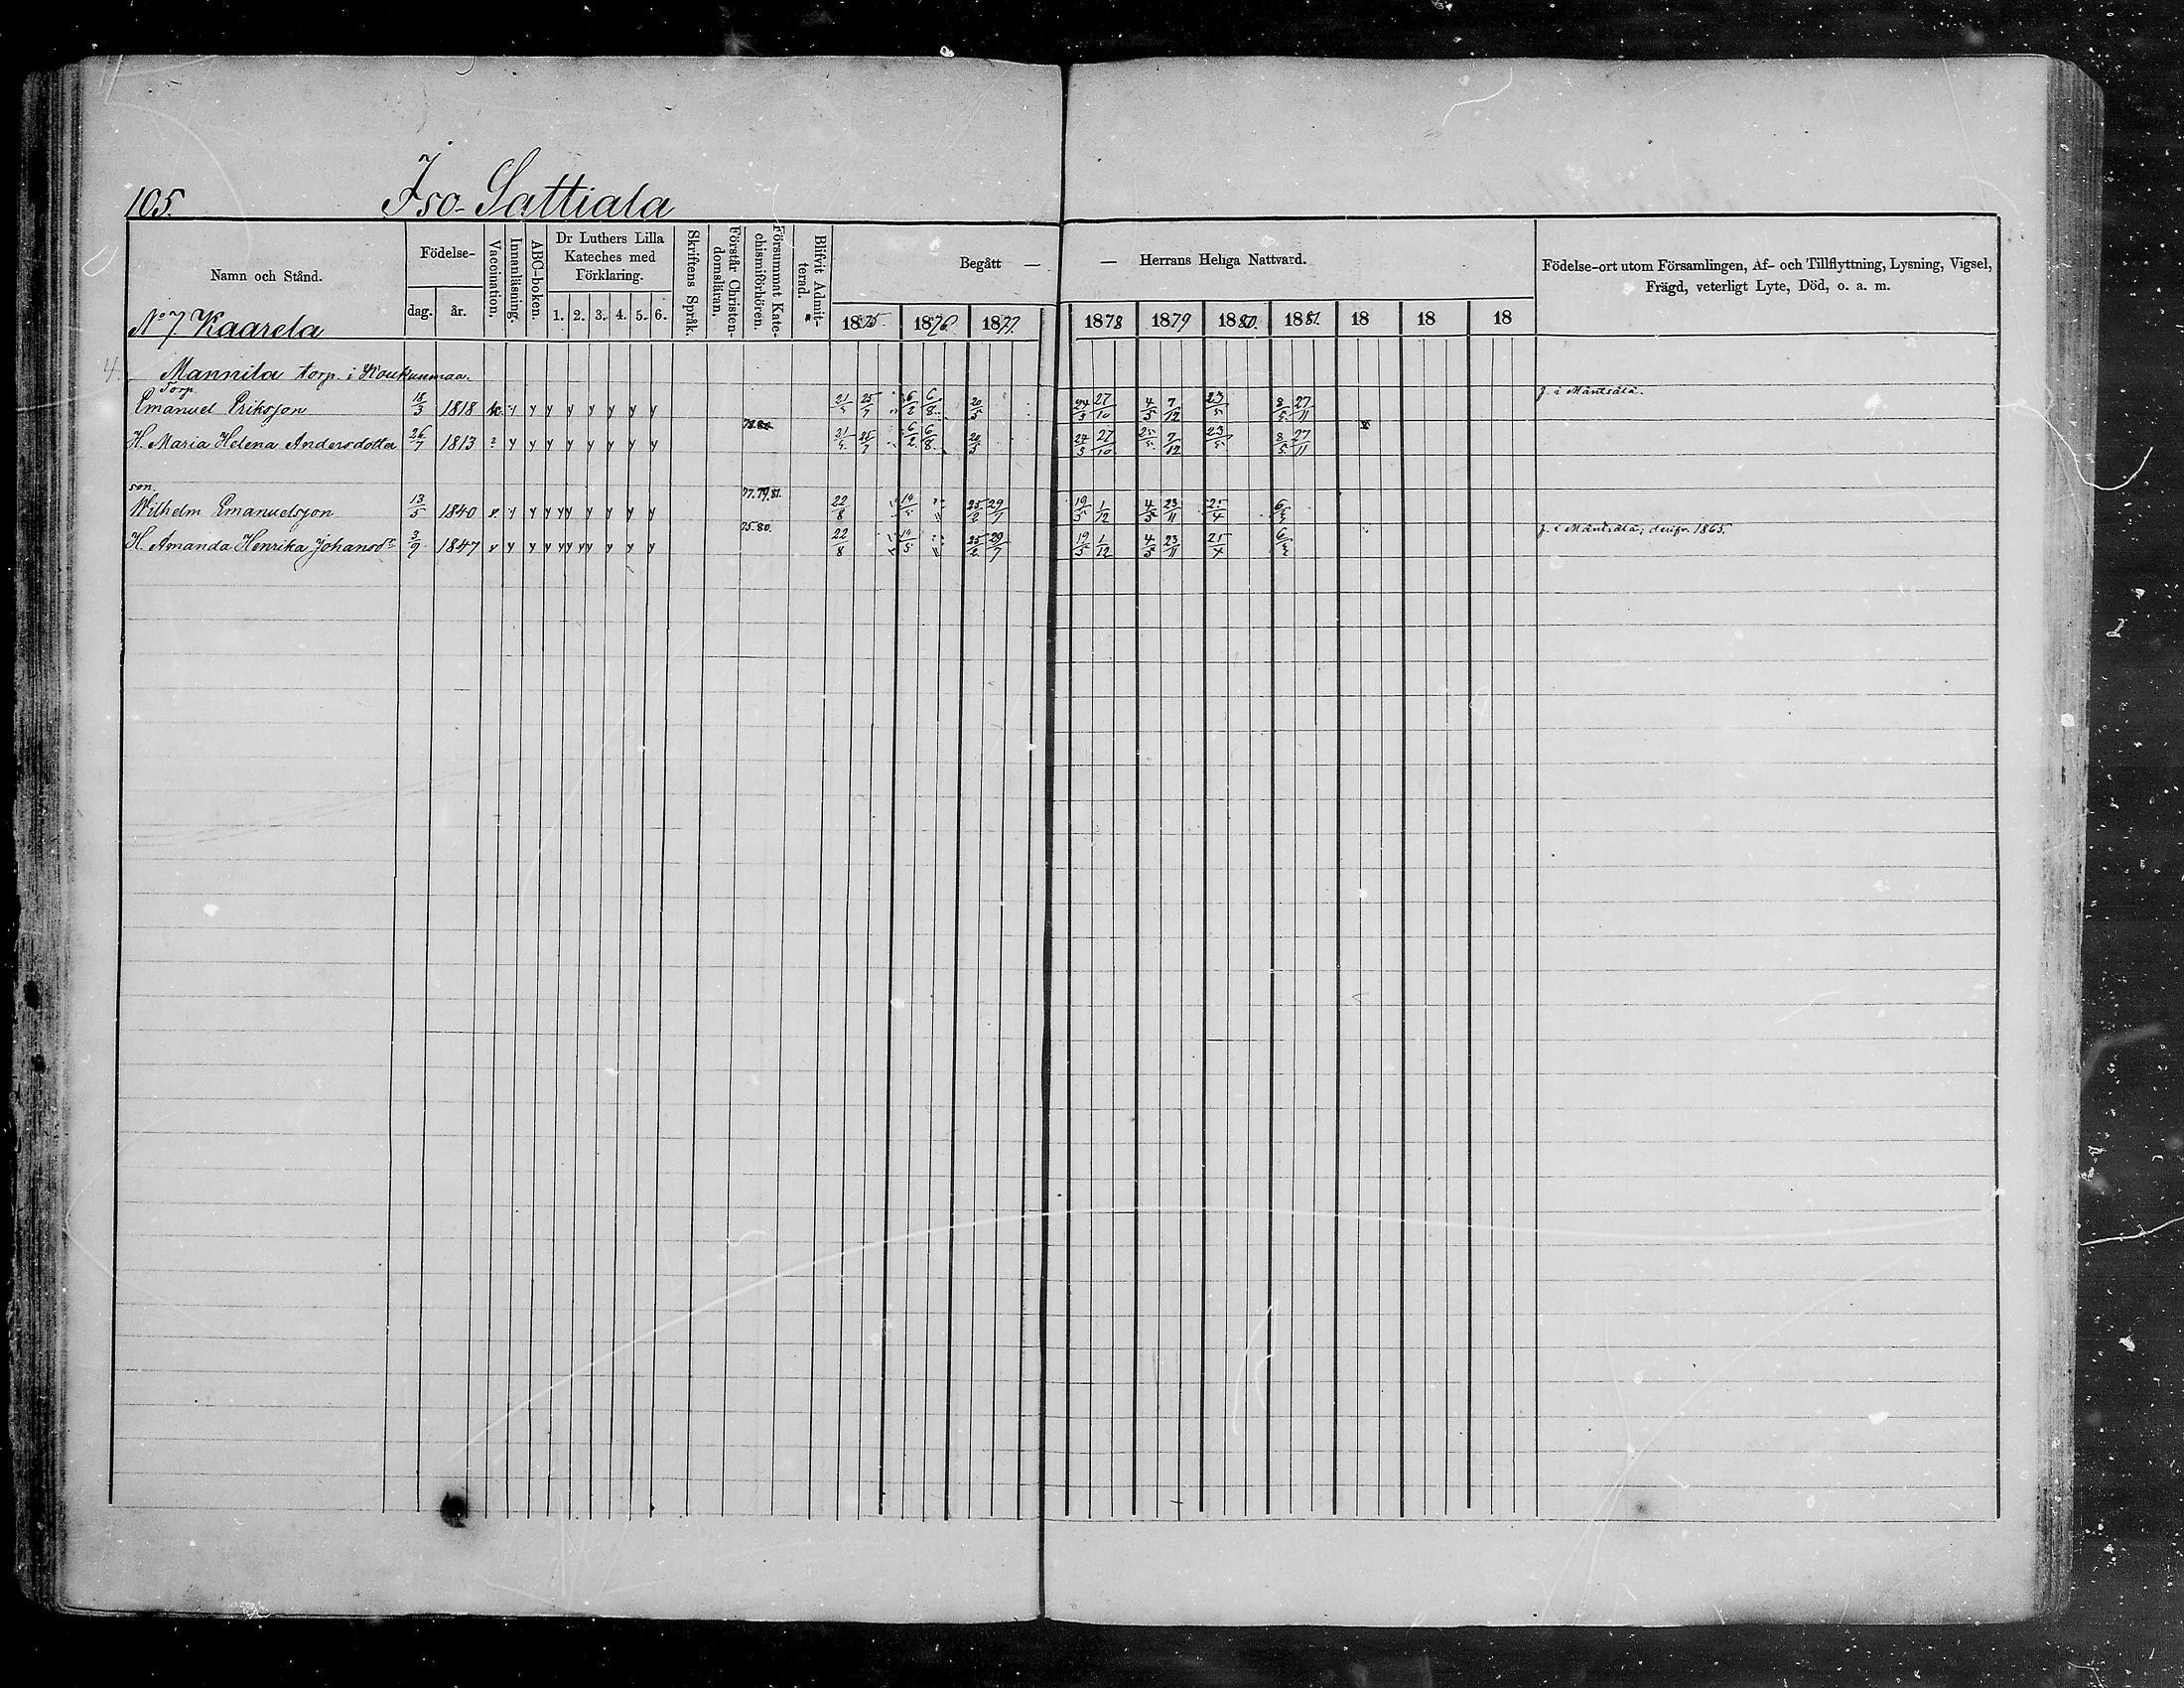 105. Iso-Sattiala
Namn och Stånd.
Födelse-
dag. år.
Vaccination.
Innanläsning.
ABC-boken.
Dr Luthers Lilla
Kateches med
Förklaring.
1. 2. 3. 4. 5. 6.
Skriftens Språk.
Förstår Christen-
domsläran.
Försummat Kate-
chismiförhören.
Blifvit Admit-
terad.
Begått — — Herrans Heliga Nattvard.
1875. 1876. 1877. 1878 1879 1880. 1881. 18 18 18
Födelse-ort utom Församlingen, Af- och Tillflyttning, Lysning, Vigsel,
Frägd, veterligt Lyte, Död, o. a. m.
No 7 Kaarela
4. Mannila torp. i Koukunmaa.
Torp
Emanuel Eriksson 18/3 1818 y y y y y y y y 21/5 25/7 6/2 6/8 20/5 24/3 27/10 4/5 7/12 23/5 8/5 27/11 f. i Mäntsälä.
H. Maria Helena Andersdotter 26/7 1813 y y y y y y y y 21/5 25/7 6/2 6/8 20/5 24/3 27/10 25/5 7/12 23/5 8/5 27/11
son.
77.79.81.
Wilhelm Emanuelsson 13/5 1840 v y y y yy y y y y 22/8 14/5 25/2 29/7 19/5 1/12 4/5 23/11 25/4
75.80.
H. Amanda Henrika Johansdr 3/9 1847 v y y yy yy y y y y 22/8 14/5 25/2 29/7 19/5 1/12 4/5 23/11 25/4 f. i Mäntsälä; derifr. 1865.